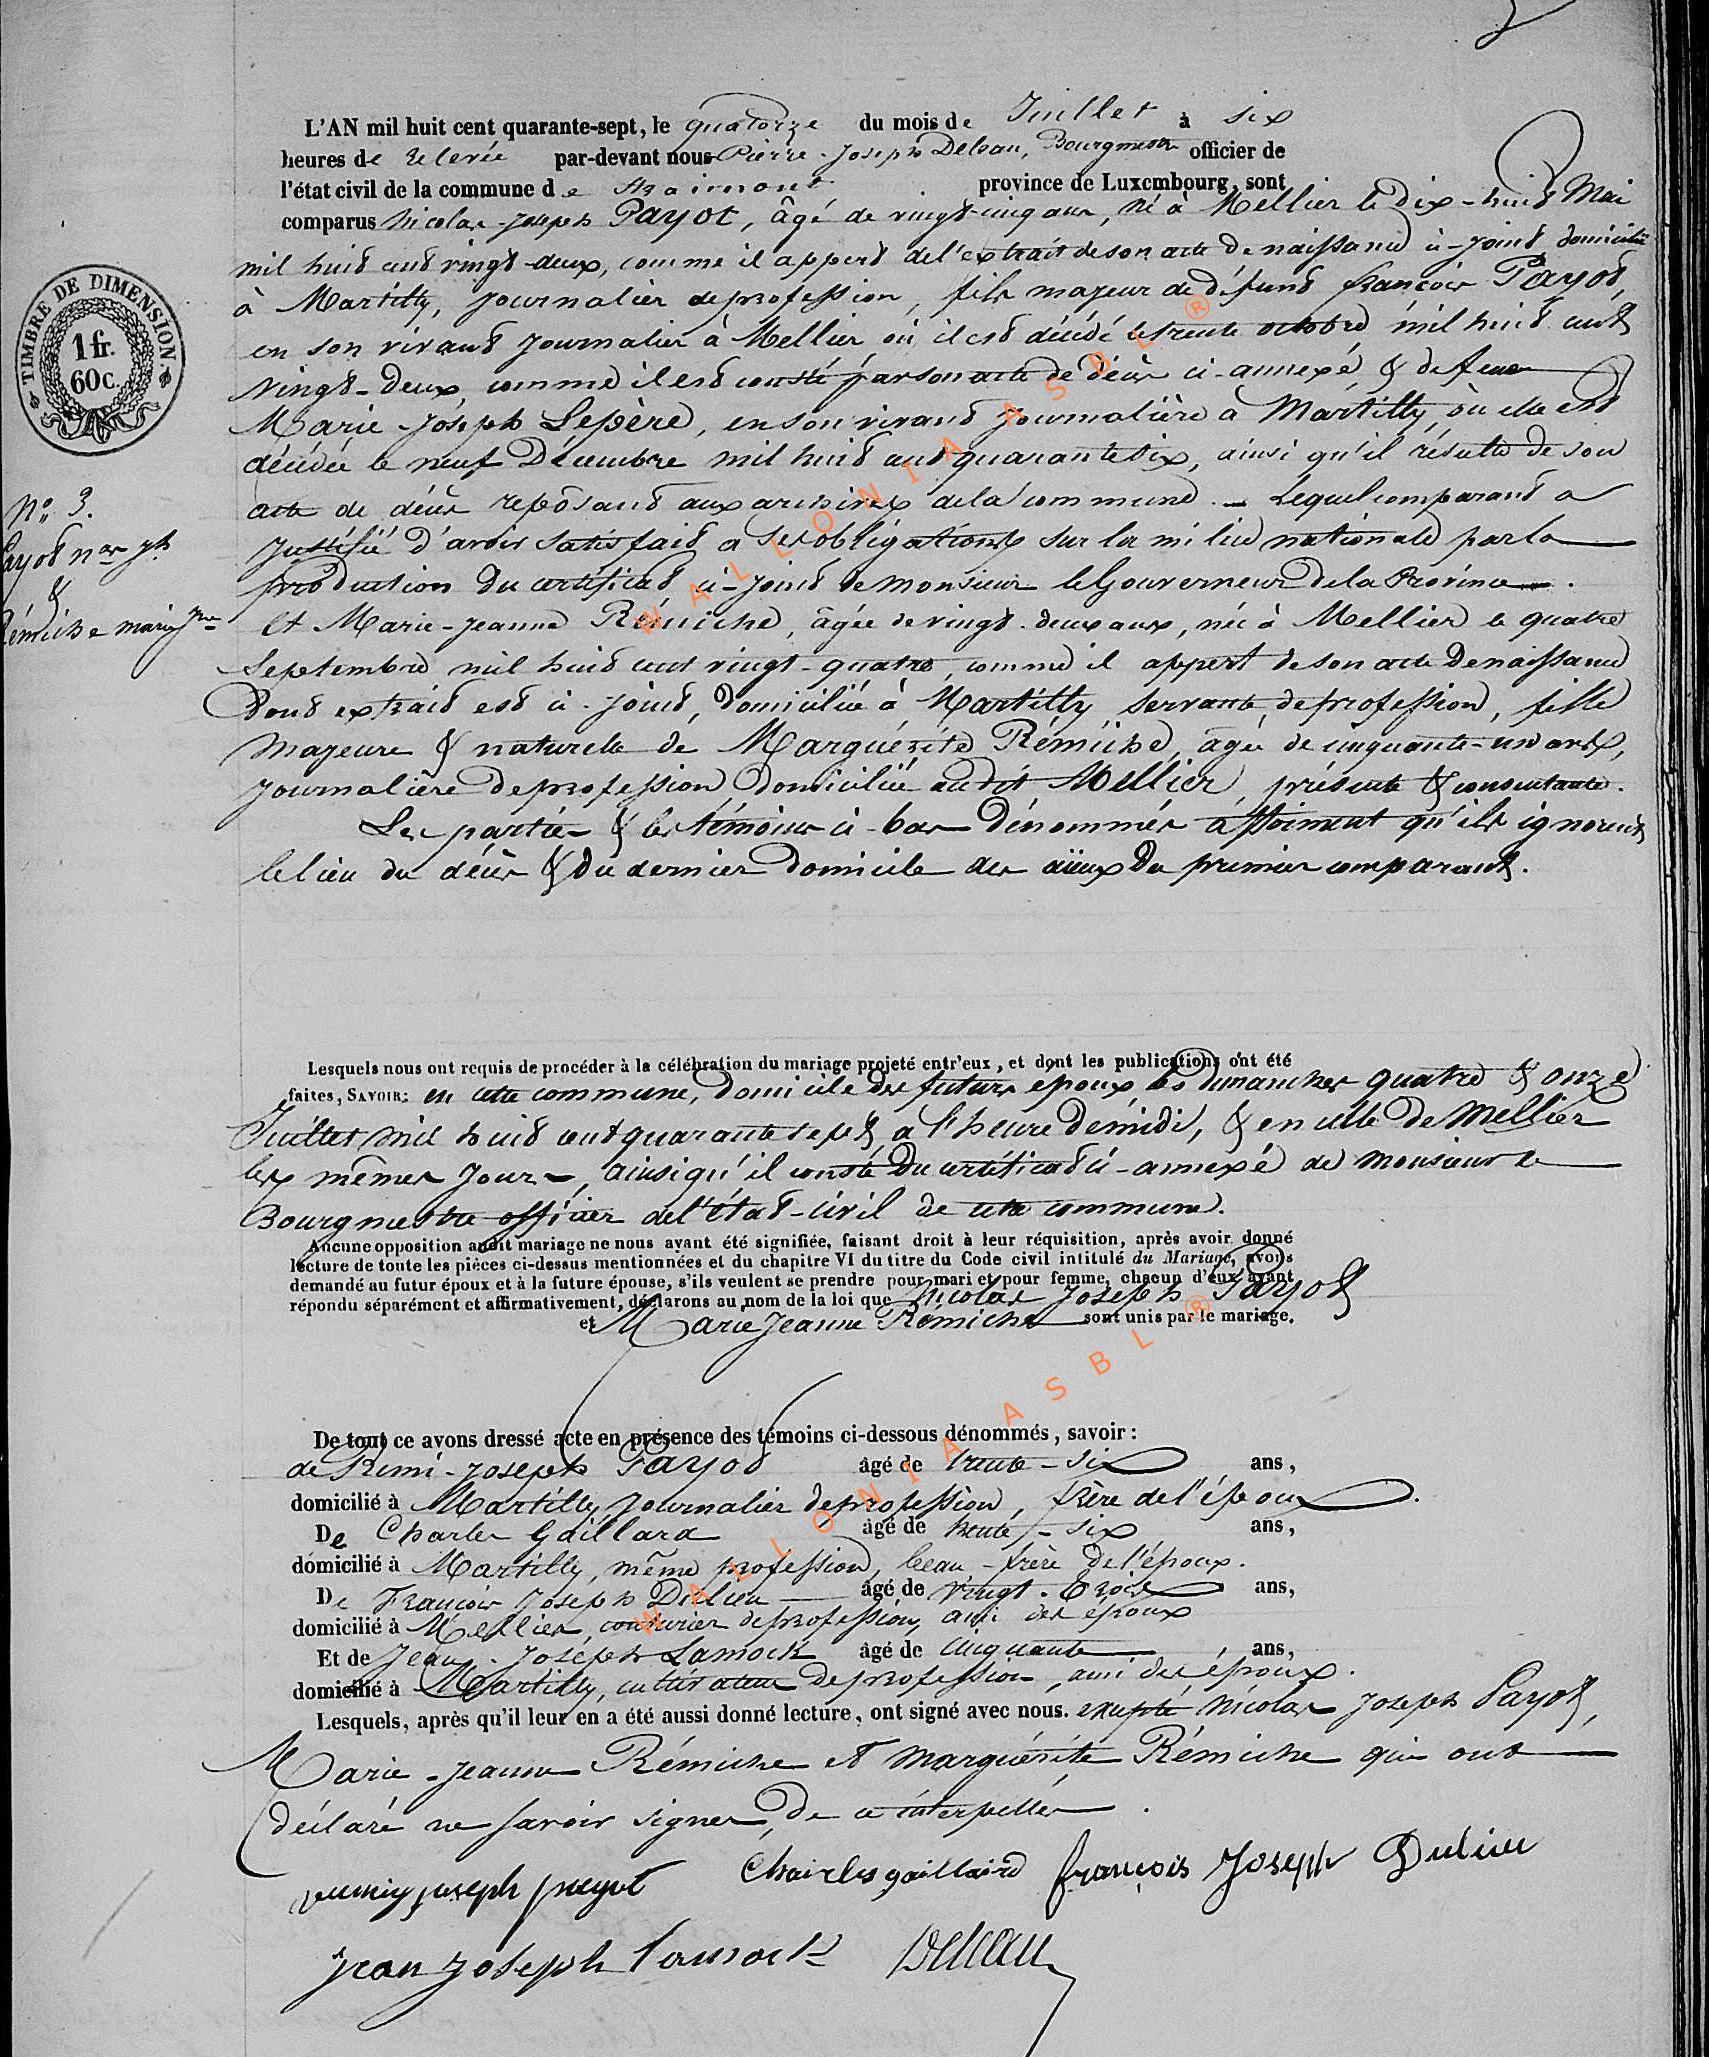 L'AN mil huit cent quarante-sept, le quatorze du mois de Juillet à six
heures de relevée par-devant nous Pierre-Joseph Delsau, Bourgmestre officier de
l'état civil de la commune de Straimont province de Luxembourg, sont
comparus Nicolas-Joseph Payot, âgé de vingt-cinq ans, né à Mellier le dix-huit Mai
mil huit cent vingt-deux, comme il appert de l'extrait de son acte de naissance ci-joint domicilié
à Martilly, journalier de profession, fils majeur de défunt François Payot,
en son vivant journalier à Mellier où il est décédé le trente octobre mil huit cent
vingt-deux, comme il est consté par son acte de décès ci-annexé & de feue
Marie-Joseph Lepère, en son vivant journalière à Martilly, où elle est
décédée le neuf Décembre mil huit cent quarante six, ainsi qu'il résulte de son
acte de décès reposant aux archives de la commune. - Lequel comparant a
justifié d'avoir satisfait a ses obligations sur la milice nationale par la
production du certificat ci-joint de monsieur le Gouverneur de la Province.
Et Marie-Jeanne Rémiche, âgée de vingt-deux ans, née à Mellier le quatre
Septembre mil huit cent vingt-quatre, comme il appert de son acte de naissance
dont extrait est ci-joint, domiciliée à Martilly servante de profession, fille
majeure & naturelle de Marguérite Rémiche, âgée de cinquante-un ans,
journalière de profession domiciliée au dit Mellier, présente & consentante.
Les parties & les témoins ci-bas dénommés affirment qu'ils ignorent
le lieu du décès & du dernier domicile des aïeux du premier comparant.
TIMBRE DE DIMENSION.
1 fr.
60 c.
No. 3.
Payot nas jh
&
Rémiche marie jne
Lesquels nous ont requis de procéder à la célébration du mariage projeté entr'eux, et dont les publications ont été
faites, SAVOIR: en cette commune, domicile des futurs époux les dimanches quatre & onze
Juillet mil huit cent quarante sept, a l'heure de midi, & en celle de Mellier
les mêmes jours, ainsi qu'il conste du certificat ci-annexé de monsieur le
Bourgmestre officier de l'état-civil de cette commune.
Aucune opposition audit mariage ne nous ayant été signifiée, faisant droit à leur réquisition, après avoir donné
lecture de toute les pièces ci-dessus mentionnées et du chapitre VI du titre du Code civil intitulé du Mariage, avons
demandé au futur époux et à la future épouse, s'ils veulent se prendre pour mari et pour femme, chacun d'eux ayant
répondu séparément et affirmativement, déclarons au nom de la loi que Nicolas Joseph Payot
et Marie Jeanne Rémiche sont unis par le mariage.
De tout ce avons dressé acte en présence des témoins ci-dessous dénommés, savoir:
de Remi-Joseph Payot âgé de trente-six ans,
domicilié à Martilly journalier de profession, frère de l'époux.
De Charles Gaillard âgé de trente-six ans,
domicilié à Martilly, même profession, beau-frère de l'époux.
De François Joseph Dulieu âgé de vingt-trois ans,
domicilié à Mellier, de profession, ami des époux
Et de Jean-Joseph Lamock âgé de cinquante ans,
domicilié à Martilly, cultivateur de profession, ami des époux.
Lesquels, après qu'il leur en a été aussi donné lecture, ont signé avec nous. excepté Nicolas Joseph Payot,
Marie-Jeanne Rémiche et Marguérite Rémiche qui ont
déclaré ne savoir signer, de ce interpellés.
remiy joseph payot Chairles gaillaird françois Joseph Dulieu
jean joseph lamock Delsau
WALLONIA ASBL ®
WALLONIA ASBL ®